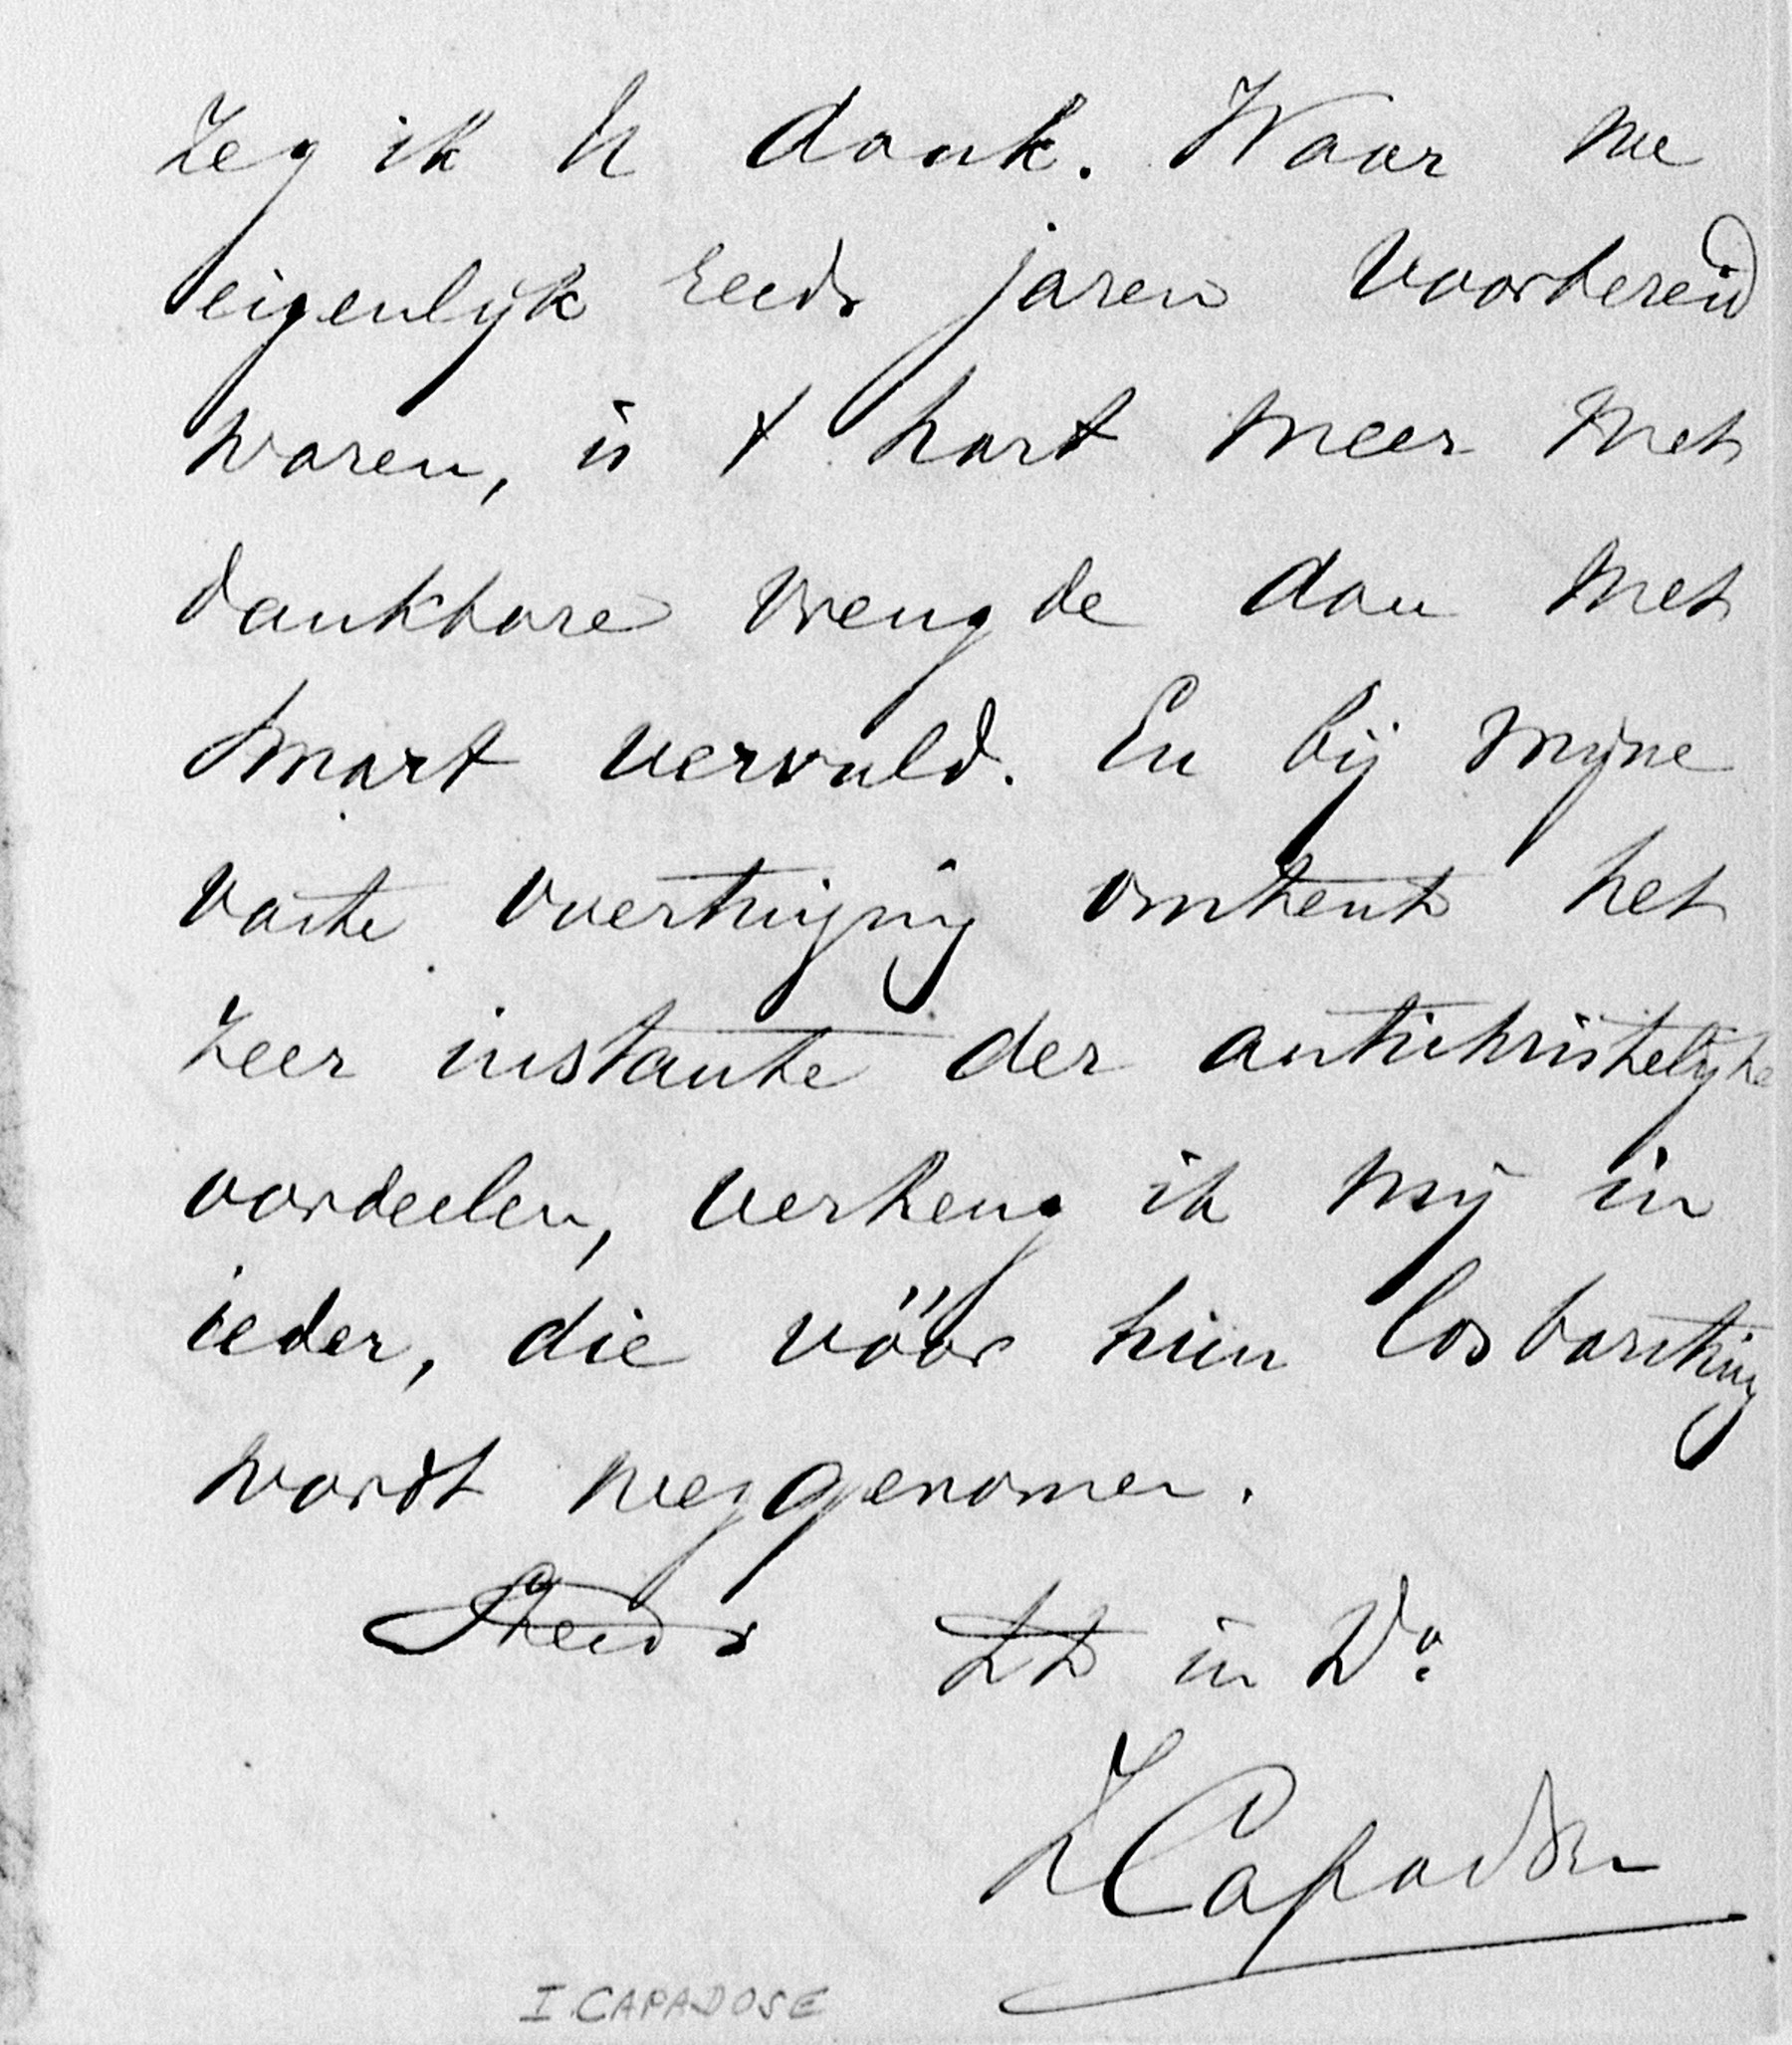 Zeg ik U dank. Waar we
eigenlijk reeds jaren voorbereid
waren, is 't hart meer met
dankbare vreugde dan met
smart vervuld. En bij mijne
vaste overtuiging omtrent het
zeer instante der antichristelijke
oordeelen, verheug ik mij in
ieder, die vóór hun losbarsting
wordt weggenomen.
Steeds tt in Do
ICapadose
I CAPADOSE